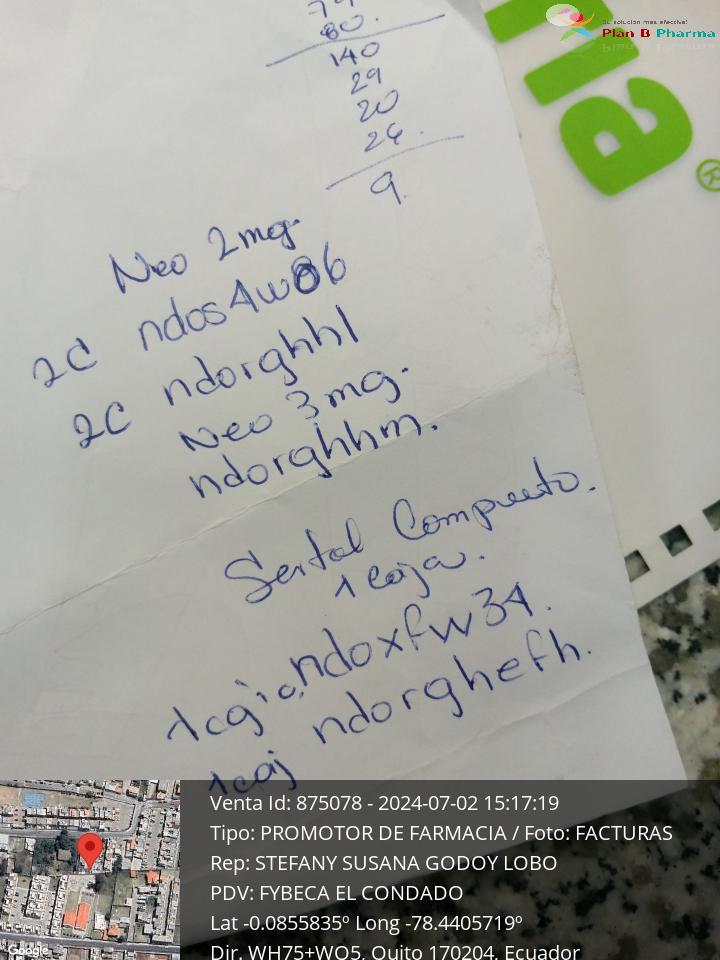 Su solución más efectiva!
Plan B Pharma
80.
140
29
20
26.
9.
na®
Neo 2mg.
2C ndos4w86
2C ndorghhl
Neo 3mg.
ndorghhm.
Sertal Compuesto.
1 caja.
ndoxfw34.
ndorghefh.
1caj
Venta Id: 875078 - 2024-07-02 15:17:19
Tipo: PROMOTOR DE FARMACIA / Foto: FACTURAS
Rep: STEFANY SUSANA GODOY LOBO
PDV: FYBECA EL CONDADO
Lat -0.0855835º Long -78.4405719º
Dir. WH75+WQ5, Quito 170204, Ecuador
Google